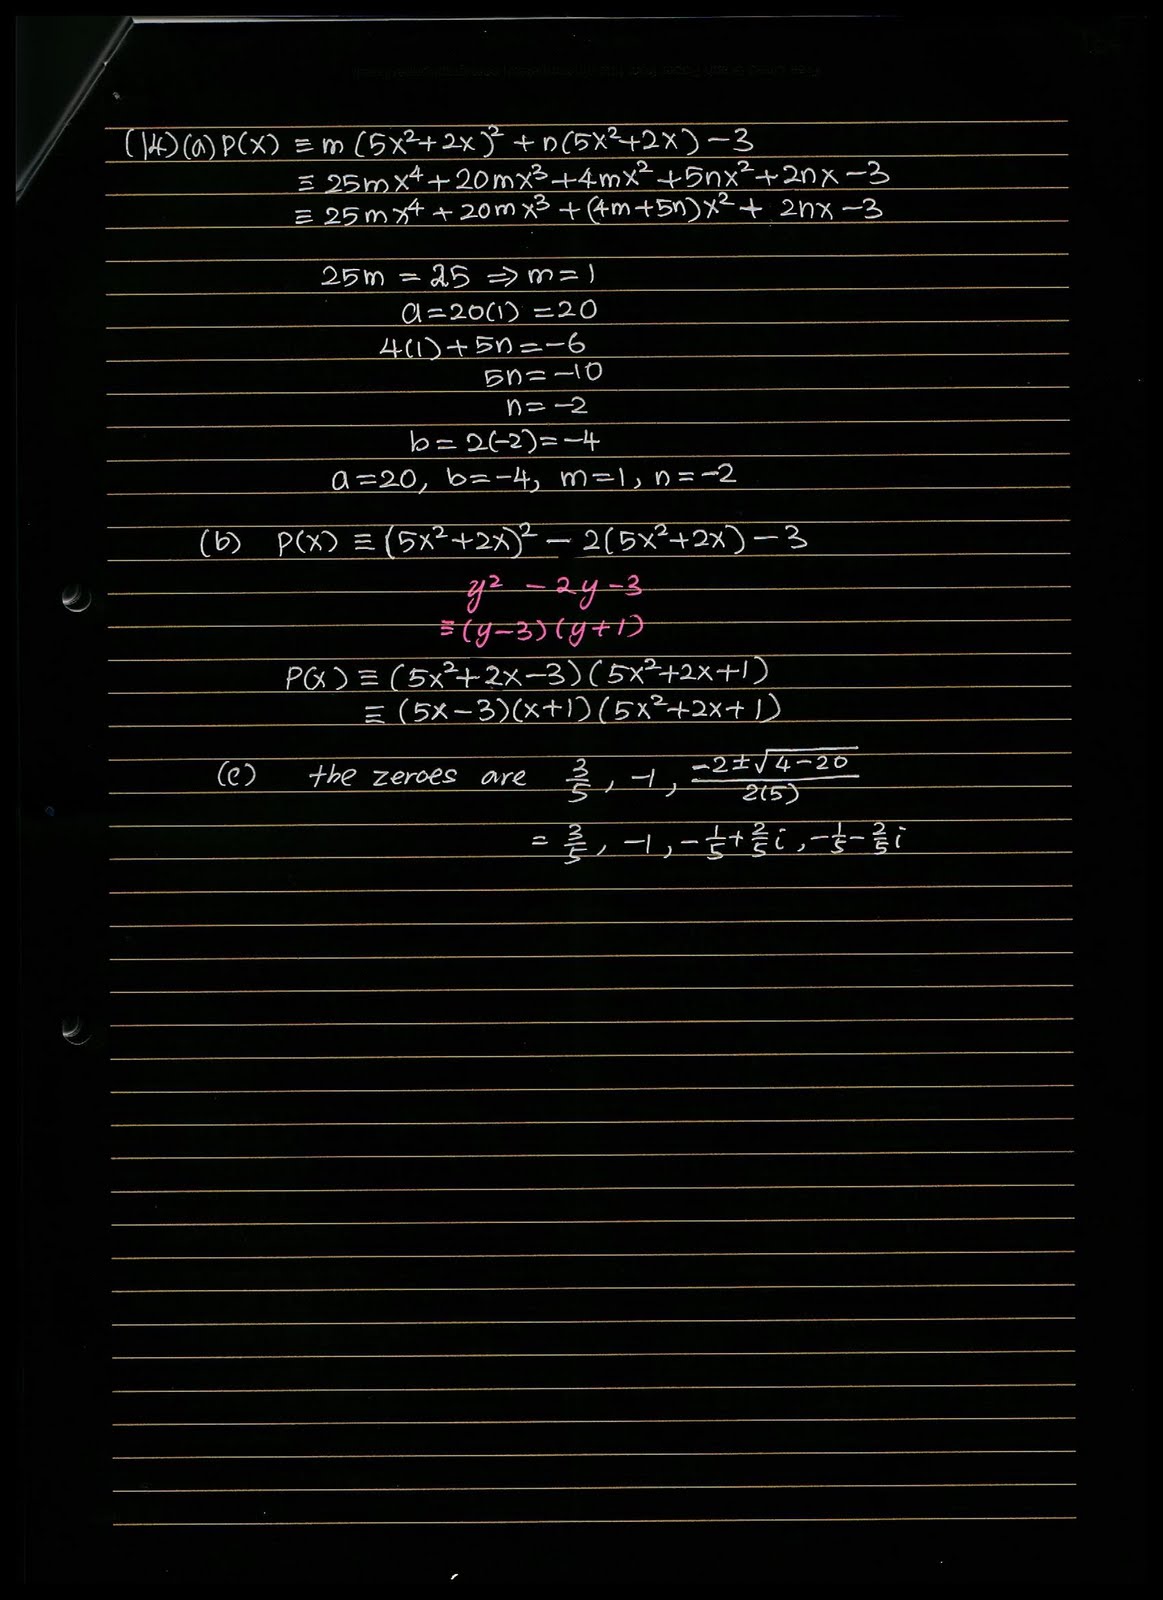 (14)(a) P(x) ≡ m(5x²+2x)² + n(5x²+2x) - 3
≡ 25mx⁴ + 20mx³ + 4mx² + 5nx² + 2nx - 3
≡ 25mx⁴ + 20mx³ + (4m+5n)x² + 2nx - 3
25m = 25 ⇒ m = 1
a = 20(1) = 20
4(1) + 5n = -6
5n = -10
n = -2
b = 2(-2) = -4
a = 20, b = -4, m = 1, n = -2
(b) P(x) ≡ (5x²+2x)² - 2(5x²+2x) - 3
y² - 2y - 3
≡ (y-3)(y+1)
P(x) ≡ (5x²+2x-3)(5x²+2x+1)
≡ (5x-3)(x+1)(5x²+2x+1)
(c) the zeroes are 3/5, -1, (-2±√(4-20))/2(5)
= 3/5, -1, -1/5 + 2/5 i, -1/5 - 2/5 i